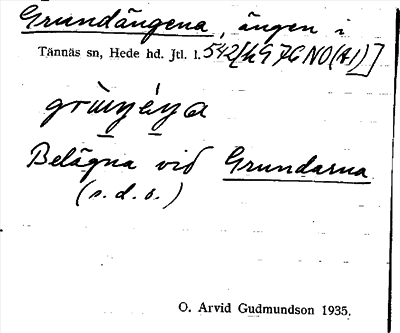 Grundängena, ängen i
Tännäs sn, Hede hd. Jtl. l. 542[hG7G NO(A1)]
Belägna vid Grundarna
(s.d.o.)
O. Arvid Gudmundson 1935.